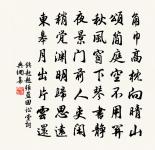 角巾高枕向晴山
頌簡庭空不用關
秋風窗下琴書靜
夜景門前人吏閑
稍覺淵明歸思遠
東皋月出片雲還
錢起題張藍田訟堂詞